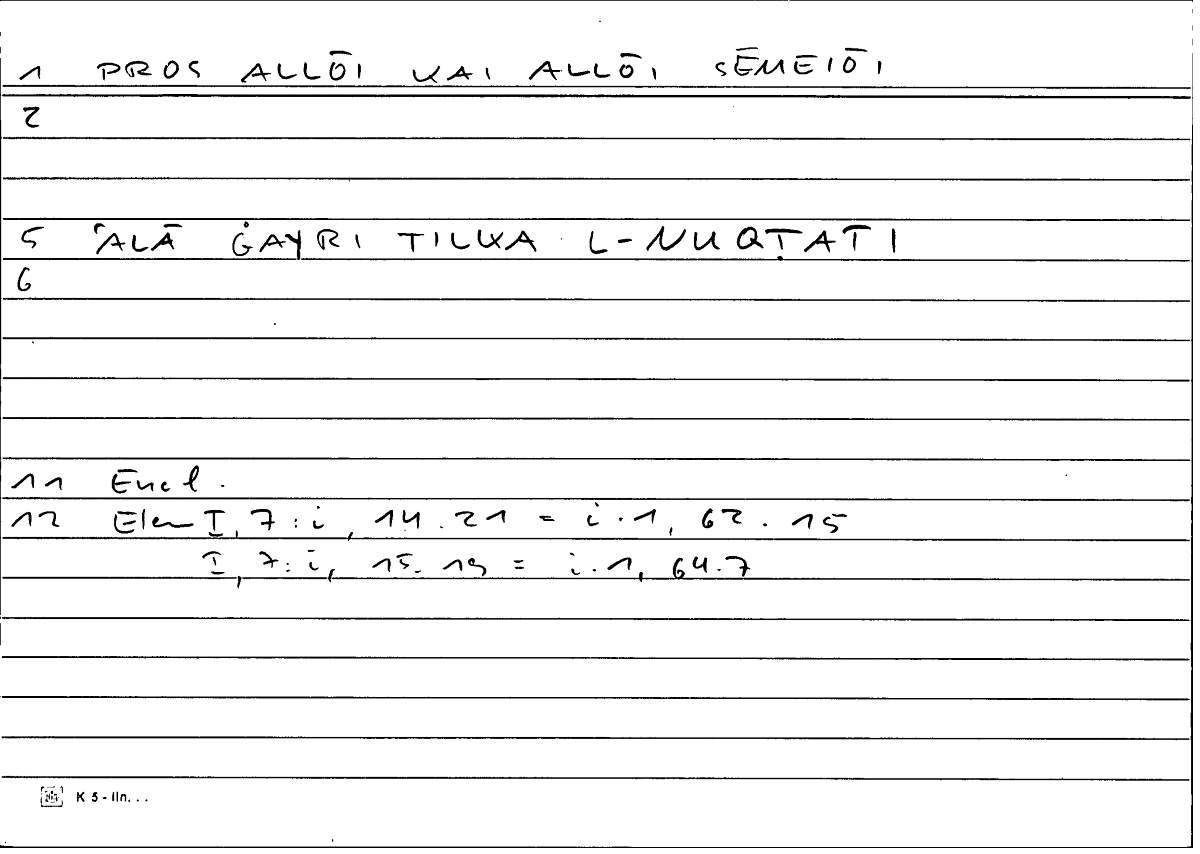 1 PROS ALLŌI KAI ALLŌI SĒMEIŌI
2
5 ʿALĀ ĠAYRI TILKA L-NUQṬATI
6
11 Eucl.
12 Elem I, 7: i, 14.21 = i.1, 62.15
I, 7: i, 15.19 = i.1, 64.7
K 5 - lln...